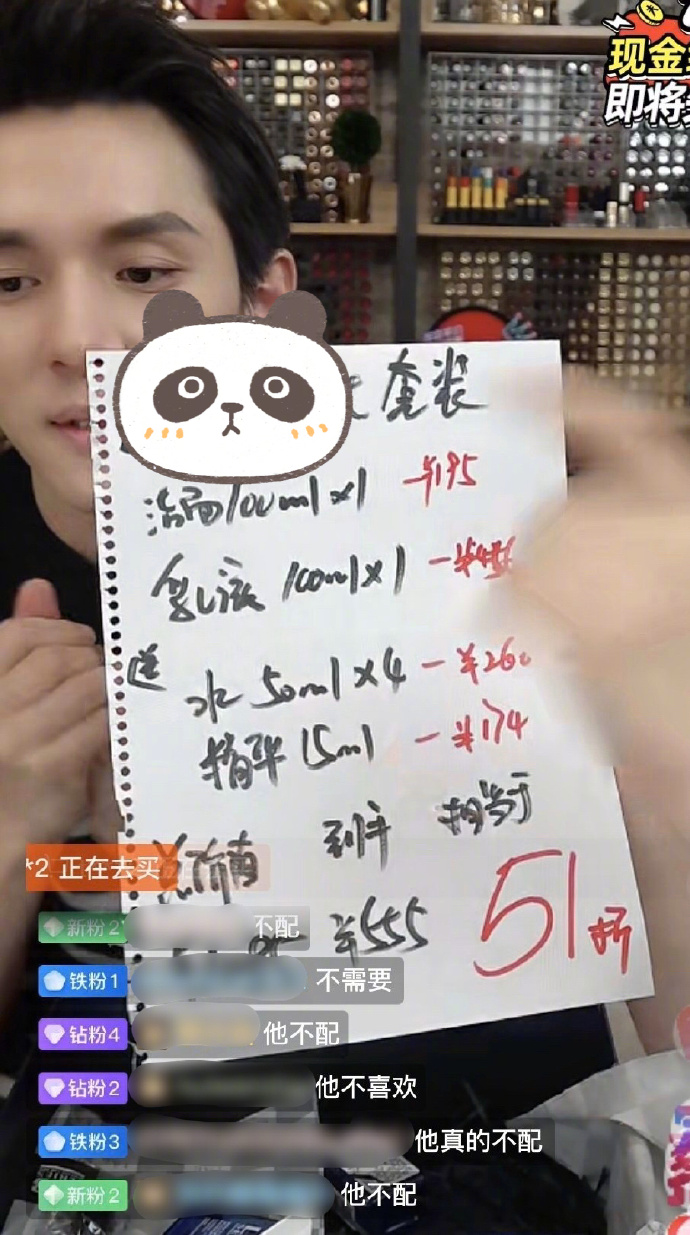 现金
即将
套装
洁面100ml×1 -¥195
乳液100ml×1
送
水50ml×4 -¥260
精华15ml -¥174
到手
相当于
¥555
51折
*2 正在去买
新粉2
不配
铁粉1
不需要
钻粉4
他不配
钻粉2
他不喜欢
铁粉3
他真的不配
新粉2
他不配